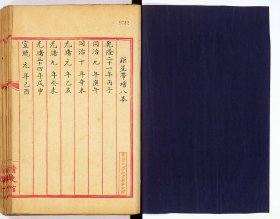 距星帶增八本
乾隆二十一年丙子
同治九年庚午
同治十年辛未
光緒元年乙亥
光緒九年癸未
光緒三十四年戊申
宣統元年己酉